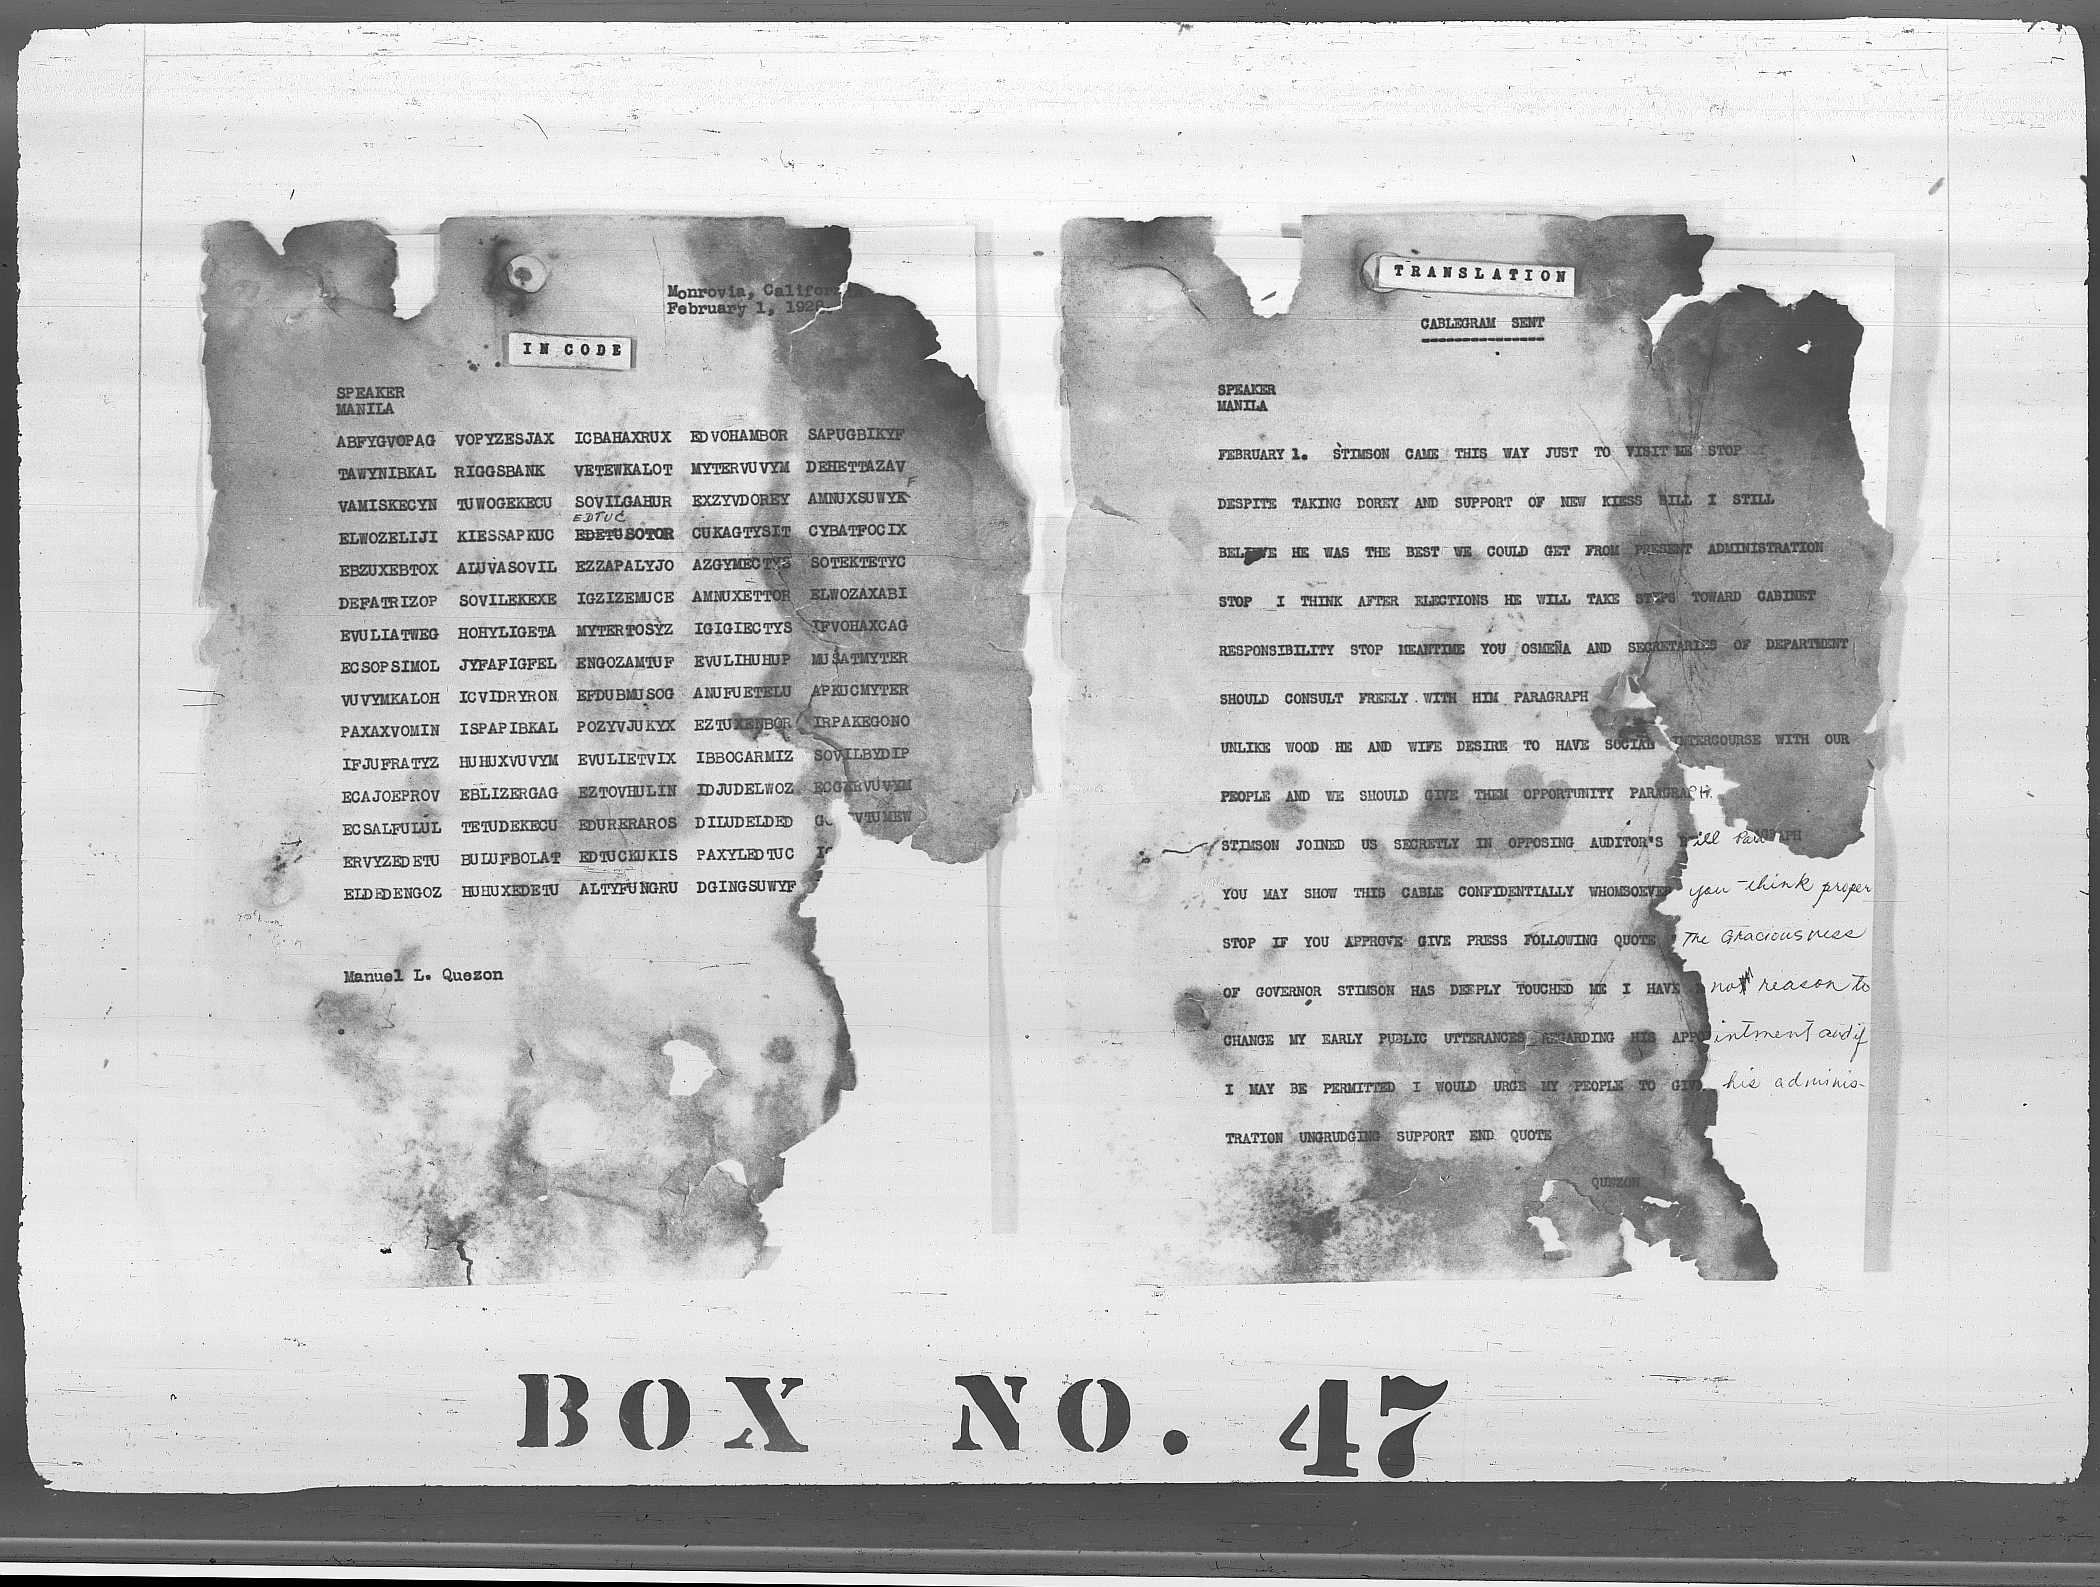 Monrovia, Califor
February 1, 192
IN CODE
SPEAKER
MANILA
ABFYGVOPAG VOPYZESJAX ICBAHAXRUX EDVOHAMBOR SAPUGBIKYF
TAWYNIBKAL RIGGSBANK VETEWKALOT MYTERVUVYM DEHETTAZAV
F
VAMISKECYN TUWOGEKECU SOVILGAHUR EXZYVDOREY AMNUXSUWYK
EDTUC
ELWOZELIJI KIESSAPKUC EDETUSOTOR CUKAGTYSIT CYBATFOCIX
EBZUXEBTOX ALUVASOVIL EZZAPALYJO AZGYMECTYS SOTEKTETYC
DEFATRIZOP SOVILEKEXE IGZIZEMUCE AMNUXETTOR ELWOZAXABI
EVULIATWEG HOHYLIGETA MYTERTOSYZ IGIGIECTYS IFVOHAXCAG
ECSOPSIMOL JYFAFIGFEL ENGOZAMTUF EVULIHUHUP MUSATMYTER
VUVYMKALOH ICVIDRYRON EFDUBMUSOG ANUFUETELU APKUCMYTER
PAXAXVOMIN ISPAPIBKAL POZYVJUKYX EZTUXENBOR IRPAKEGONO
IFJUFRATYZ HUHUXVUVYM EVULIETVIX IBBOCARMIZ SOVILBYDIP
ECAJOEPROV EBLIZERGAG EZTOVHULIN IDJUDELWOZ ECGERVUVYM
ECSALFULUL TETUDEKECU EDURERAROS DILUDELDED
ERVYZEDETU BULUFBOLAT EDTUCKUKIS PAXYLEDTUC
ELDEDENGOZ HUHUXEDETU ALTYFUNGRU DGINGSUWYF
Manuel L. Quezon
TRANSLATION
CABLEGRAM SENT
SPEAKER
MANILA
FEBRUARY 1. STIMSON CAME THIS WAY JUST TO VISIT ME STOP
DESPITE TAKING DOREY AND SUPPORT OF NEW KIESS BILL I STILL
BELIEVE HE WAS THE BEST WE COULD GET FROM PRESENT ADMINISTRATION
STOP I THINK AFTER ELECTIONS HE WILL TAKE STEPS TOWARD CABINET
RESPONSIBILITY STOP MEANTIME YOU OSMEÑA AND SECRETARIES OF DEPARTMENT
SHOULD CONSULT FREELY WITH HIM PARAGRAPH
UNLIKE WOOD HE AND WIFE DESIRE TO HAVE SOCIAL INTERCOURSE WITH OUR
PEOPLE AND WE SHOULD GIVE THEM OPPORTUNITY PARAGRAPH.
STIMSON JOINED US SECRETLY IN OPPOSING AUDITOR'S Bill PaRAGRAPH
YOU MAY SHOW THIS CABLE CONFIDENTIALLY WHOMSOEVER you think proper
STOP IF YOU APPROVE GIVE PRESS FOLLOWING QUOTE "The Graciousness
OF GOVERNOR STIMSON HAS DEEPLY TOUCHED ME I HAVE no reason to
CHANGE MY EARLY PUBLIC UTTERANCES REGARDING HIS APPointment and if
I MAY BE PERMITTED I WOULD URGE MY PEOPLE TO GIVE his adminis-
TRATION UNGRUDGING SUPPORT END QUOTE
QUEZON
BOX NO. 47